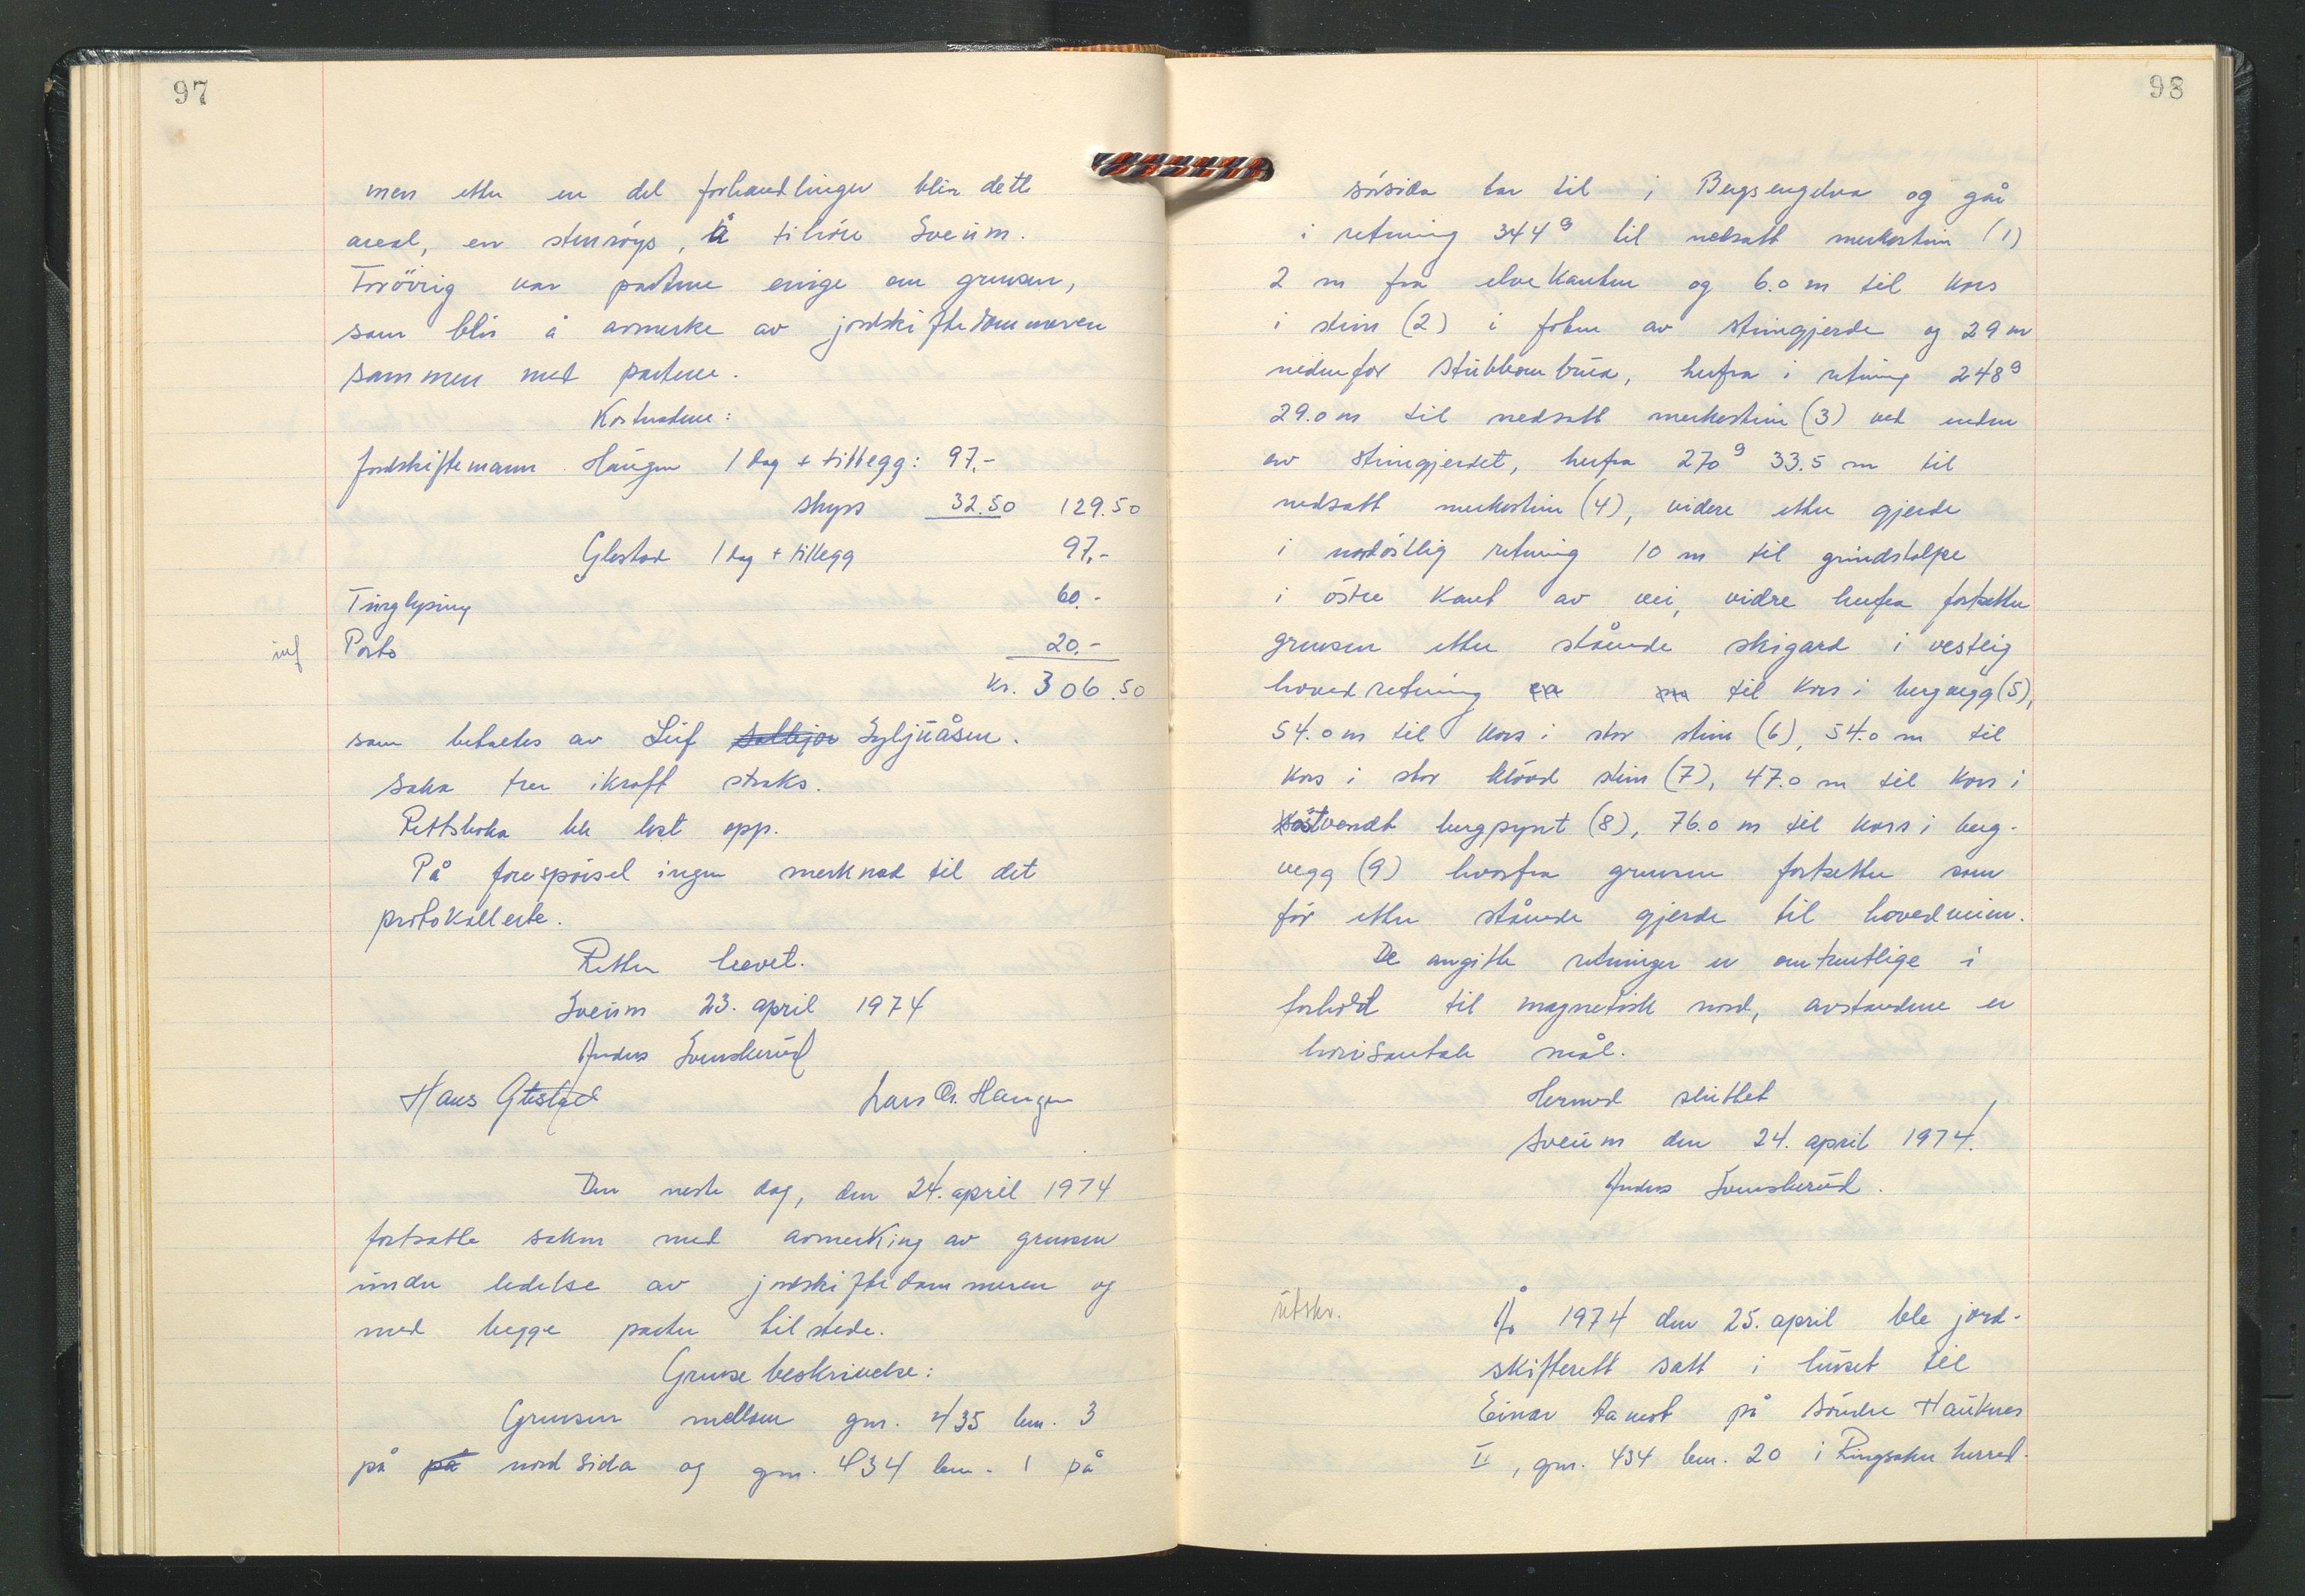 97
men etter en del forhandlinger blir dette
areal, en stenröys, å tilhöre Sveum.
Forövrig var partene enige om grensen,
som blir å avmerke av jordskiftedommeren
sammen med partene.
Kostnadene:
Jordskiftemann Haugen 1 dag + tillegg: 97,-
skyss 32.50 129.50
Glestad 1 dag + tillegg 97,-
Tinglysing 60.-
Porto 20.-
kr. 306.50
som betales av Leif Syljuåsen.
Saka trer ikraft straks.
Rettsboka ble lest opp.
På forespörsel ingen merknad til det
protokollerte.
Retten hevet.
Sveum 23. april 1974
Anders Svenskerud
Hans Glestad Lars Chr. Haugen
Den neste dag, den 24. april 1974
fortsatte saken med avmerking av grensen
under ledelse av jordskiftedommeren og
med begge parter tilstede.
Grensebeskrivelse:
Grensen mellom gnr. 435 bnr. 3
på på nordsida og gnr. 434 bnr. 1 på
98
sörsida tar til i Bergsengelva og går
i retning 344g til nedsatt merkestein (1)
2 m fra elvekanten og 6.0 m til kors
i stein (2) i foten av steingjerde og 29 m
nedenfor Stubbombrua, herfra i retning 248g
29.0 m til nedsatt merkestein (3) ved enden
av steingjerdet, herfra 270g 33.5 m til
nedsatt merkestein (4), videre etter gjerde
i nordöstlig retning 10 m til grindstolpe
i östre kant av vei, vidre herfra fortsetter
grensen etter stående skigard i vestlig
hovedretning ca m til kors i bergvegg (5),
54.0 m til kors i stor stein (6), 54.0 m til
kors i stor klövd stein (7), 47.0 m til kors i
östvendt bergpynt (8), 76.0 m til kors i berg-
vegg (9) hvorfra grensen fortsetter som
för etter stående gjerde til hovedveien.
De angitte retninger er omtrentlige i
forhold til magnetisk nord, avstandene er
horisontale mål.
Hermed sluttet
Sveum den 24. april 1974.
Anders Svenskerud.
utskr.
År 1974 den 25. april ble jord-
skifterett satt i huset til
Einar Aamot på Söndre Hauknes
II, gnr. 434 bnr. 20 i Ringsaker herred.